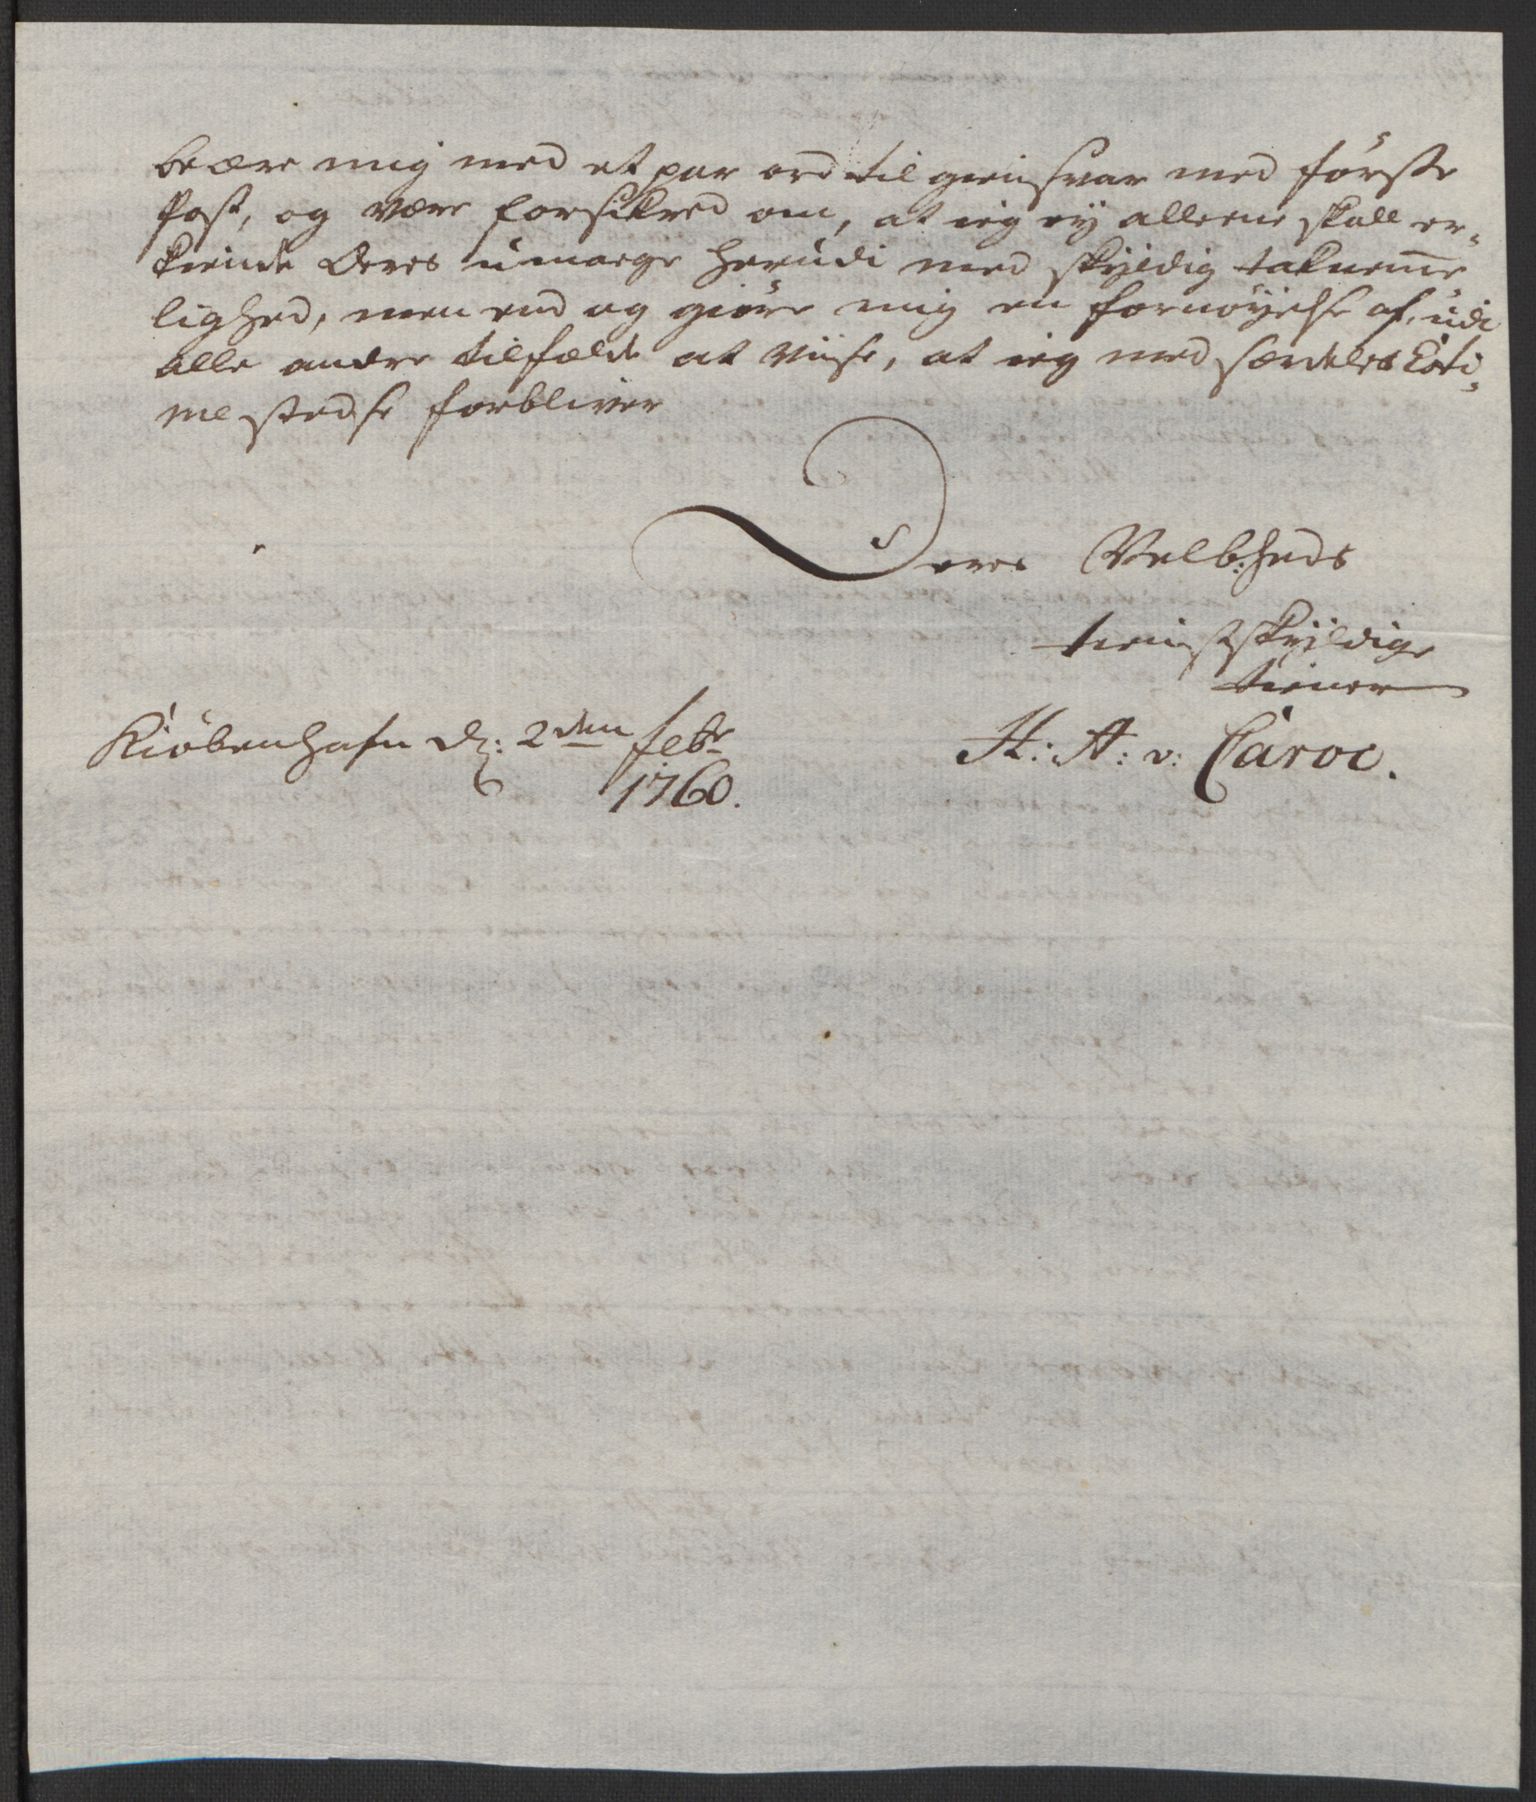 beære mig med et par ord til giensvar med förste
Post, og være forsikred om, at ieg ey alleene skall er=
kiende Deres umage herudi med skyldig taknemme
lighed, men end og giöre mig en fornöyelse af, udi
alle andre tilfælde at viise, at ieg med særdeles Esti=
me stedse forbliver
Deres Velb:heds
tienstskyldige
tiener
Kiöbenhafn d: 2den febr
1760.
H: A: v: Caroc.